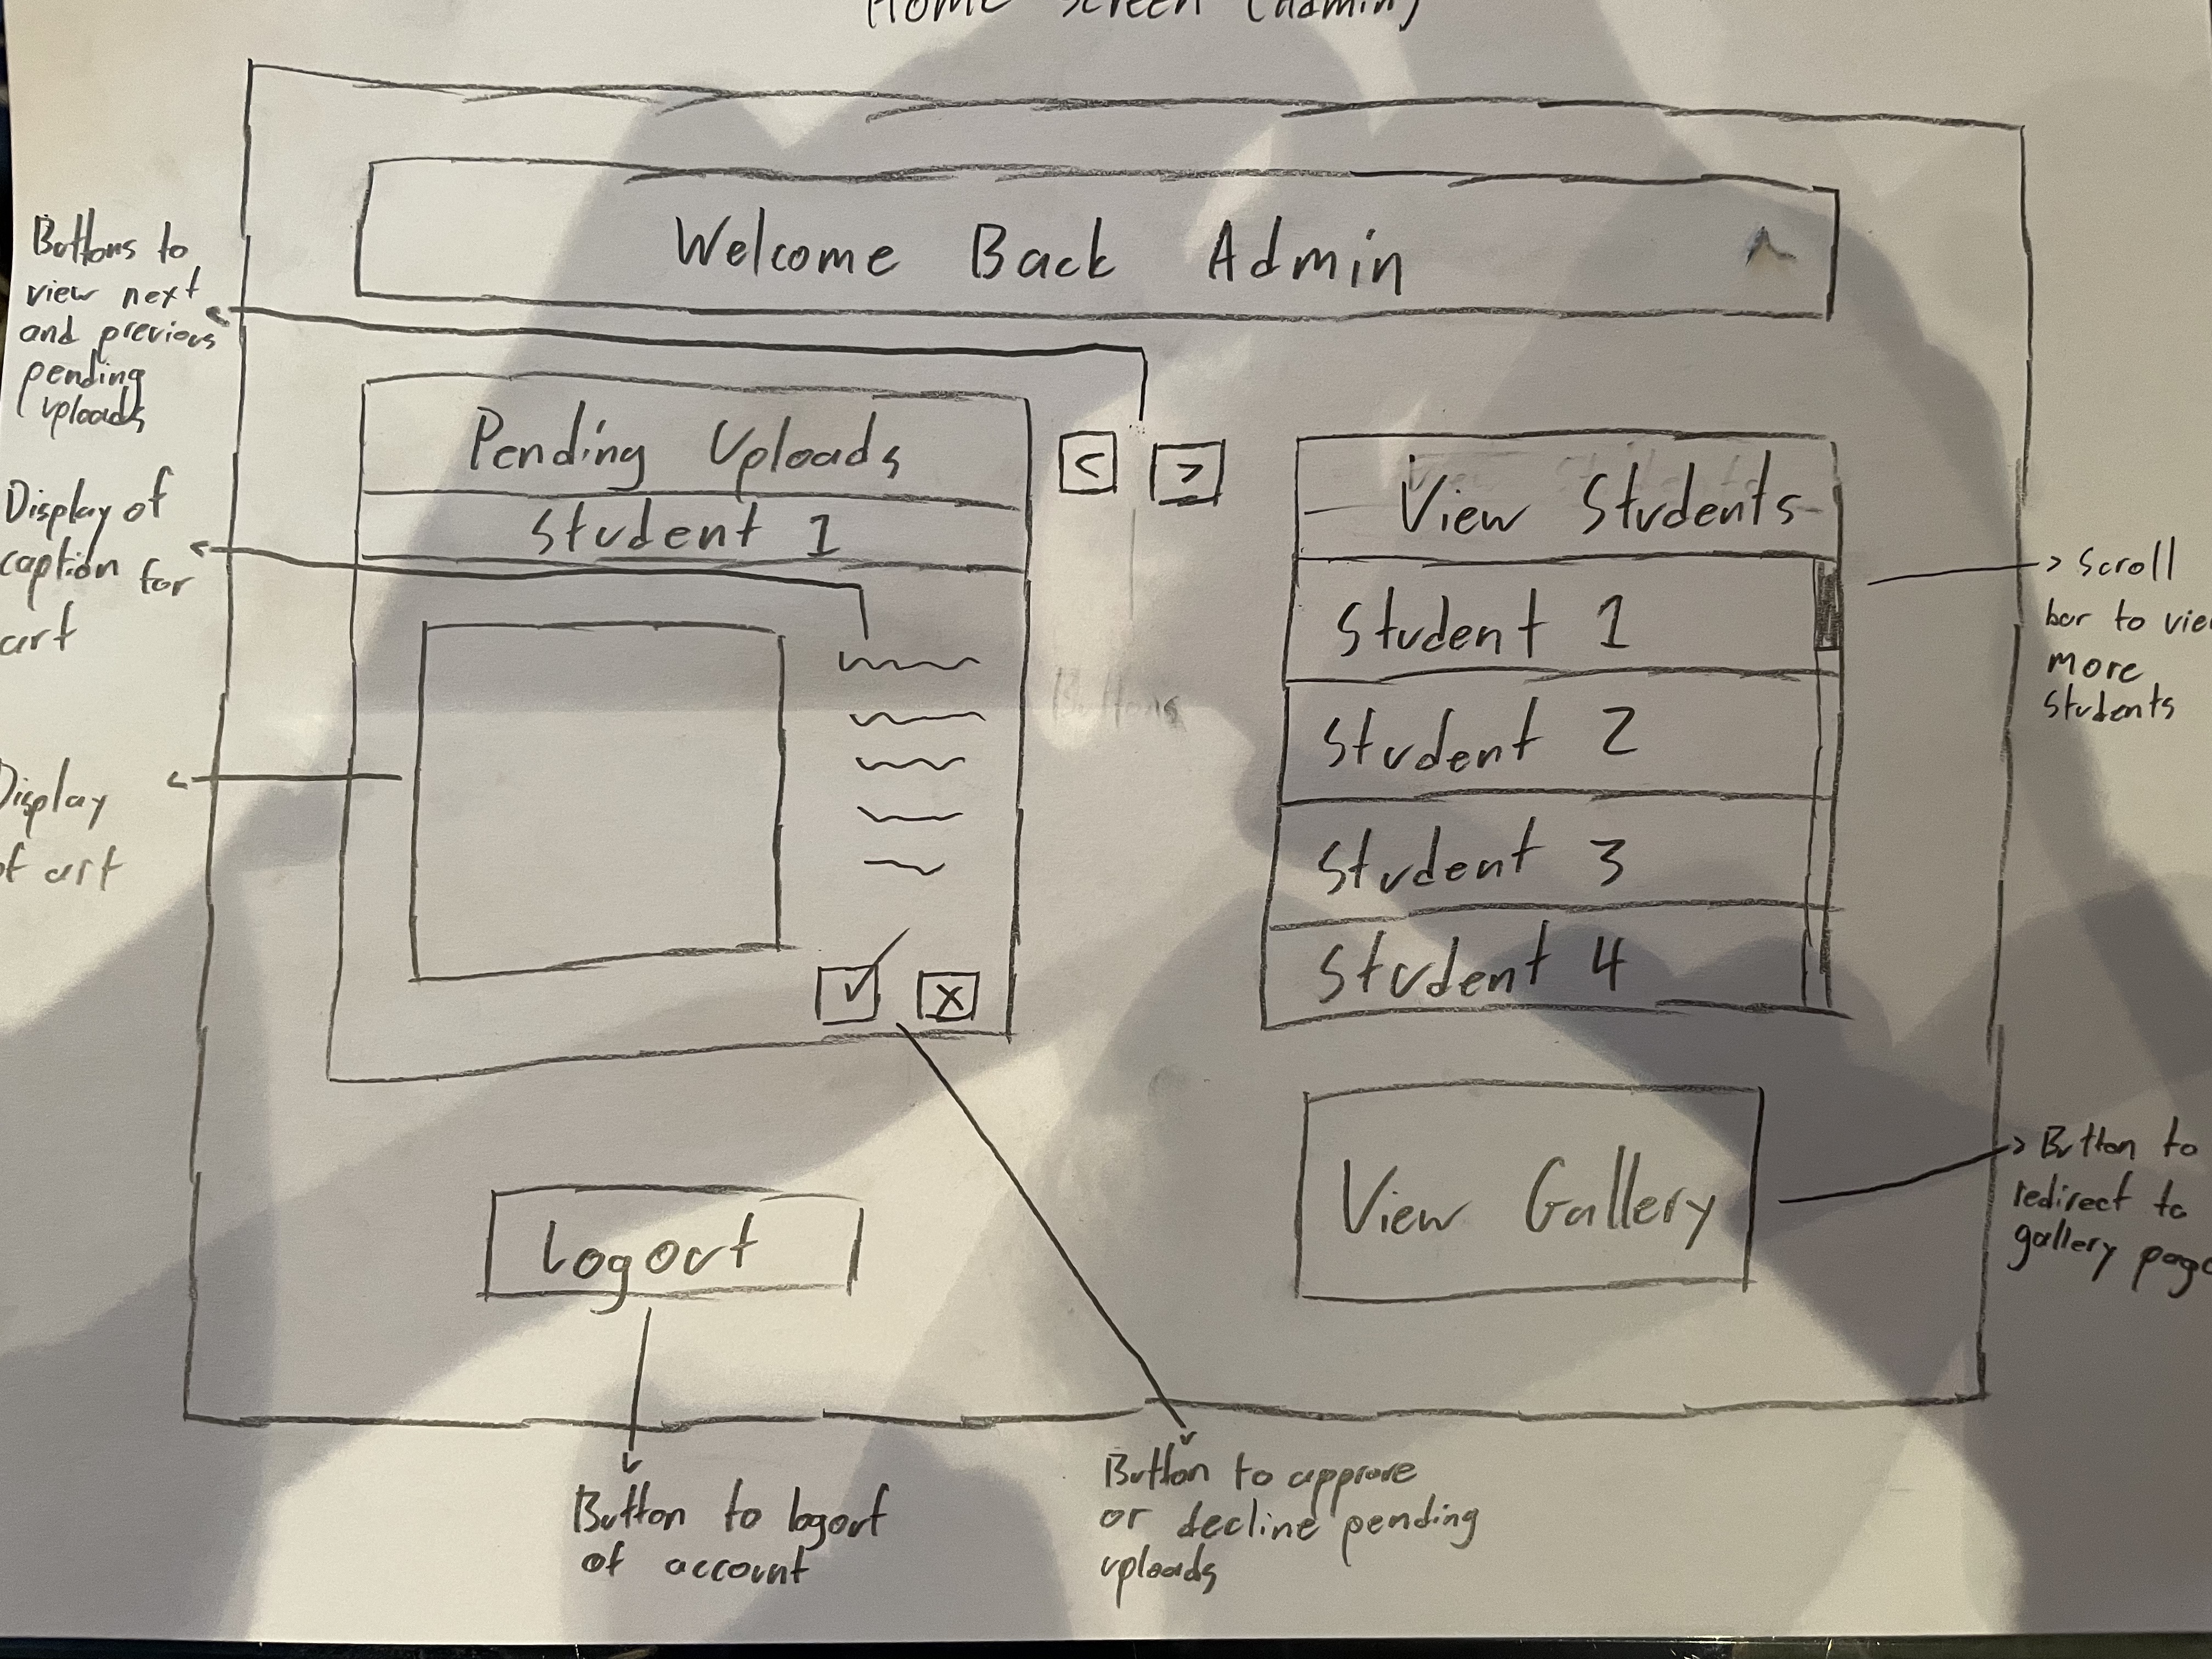 Home Screen (Admin)
Welcome Back Admin
Buttons to
view next
and previous
pending
uploads
Pending Uploads
<
>
Student 1
Display of
caption for
art
Display
of art
✓
x
View Students
Student 1
Student 2
Student 3
Student 4
Scroll
bar to view
more
students
Buttons
Logout
View Gallery
Button to
redirect to
gallery page
Button to logout
of account
Button to approve
or decline pending
uploads